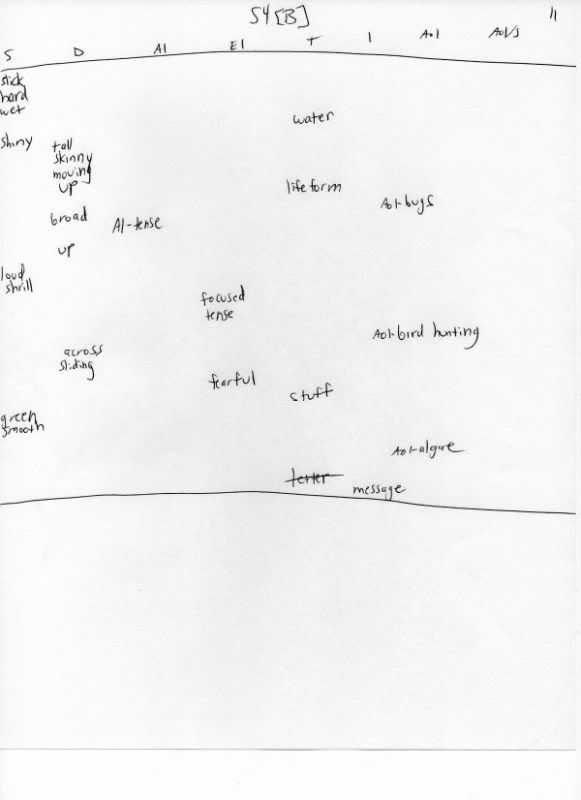 S4[B] 11
S D AI EI T I AOI AOI/S
slick
hard
wet
water
shiny tall
skinny
moving
up lifeform
AOI-bugs
broad AI-tense
up
loud
shrill
focused
tense
AOI-bird hunting
across
sliding
fearful
stuff
green
smooth
AOI-algae
letter
message